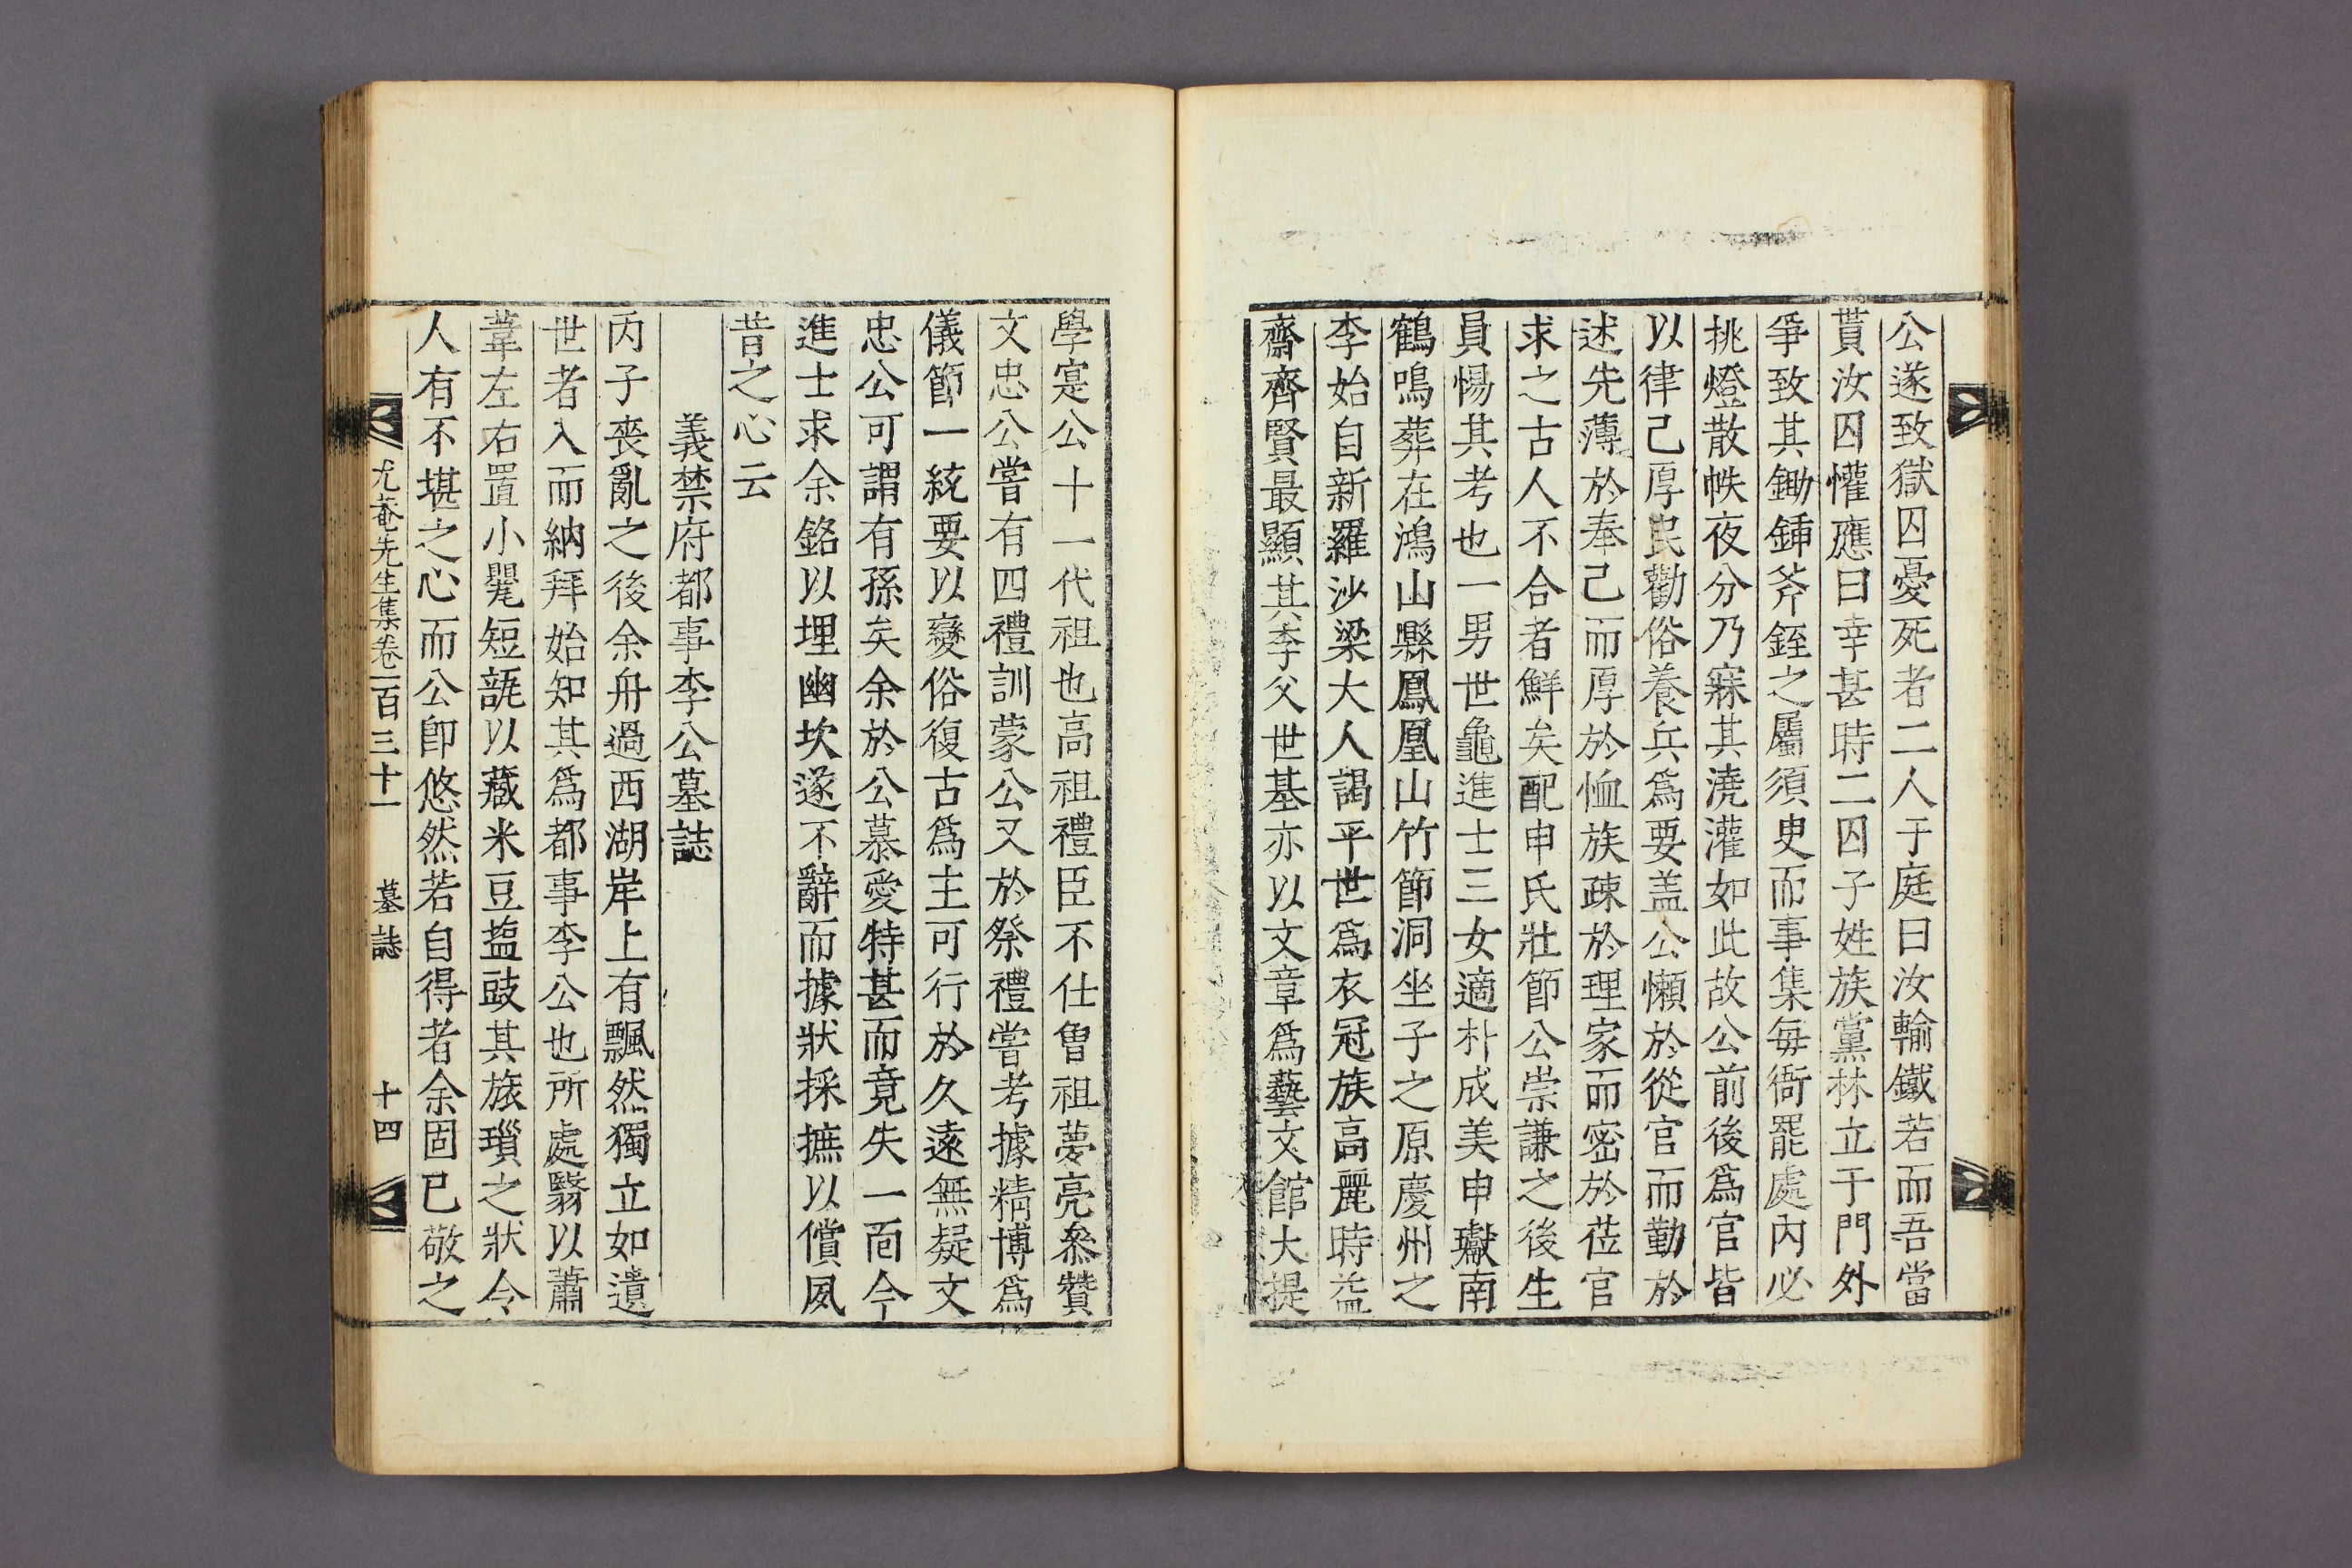 公遂致獄囚憂死者二人于庭曰汝輸鐵若而吾當
貰汝囚懽應曰幸甚時二囚子姓族黨林立于門外
爭致其鋤鍤斧銍之屬須史而事集每衙罷處內必
挑燈散帙夜分乃寐其澆灌如此故公前後爲官皆
以律己厚民勸俗養兵爲要盖公懶於從官而勤於
述先薄於奉己而厚於恤族疎於理家而密於莅官
求之古人不合者鮮矣配申氏壯節公崇謙之後生
員惕其考也一男世龜進士三女適朴成美申瓛南
鶴鳴葬在鴻山縣鳳凰山竹節洞坐子之原慶州之
李始自新羅沙梁大人謁平世爲衣冠族高麗時益
齋齊賢最顯其季父世基亦以文章爲藝文館大提
學寔公十一代祖也高祖禮臣不仕曾祖夢亮叅贊
文忠公嘗有四禮訓蒙公又於祭禮嘗考據精博爲
儀節一統要以變俗復古爲主可行於久遠無疑文
忠公可謂有孫矣余於公慕愛特甚而竟失一面今
進士求余銘以埋幽坎遂不辭而據狀採摭以償夙
昔之心云
義禁府都事李公墓誌
丙子喪亂之後余舟過西湖岸上有飄然獨立如遺
世者入而納拜始知其爲都事李公也所處翳以蕭
葦左右置小甖短瓿以藏米豆塩豉其旅瑣之狀令
人有不堪之心而公卽悠然若自得者余固已敬之
尤菴先生集卷一百三十一 墓誌 十四